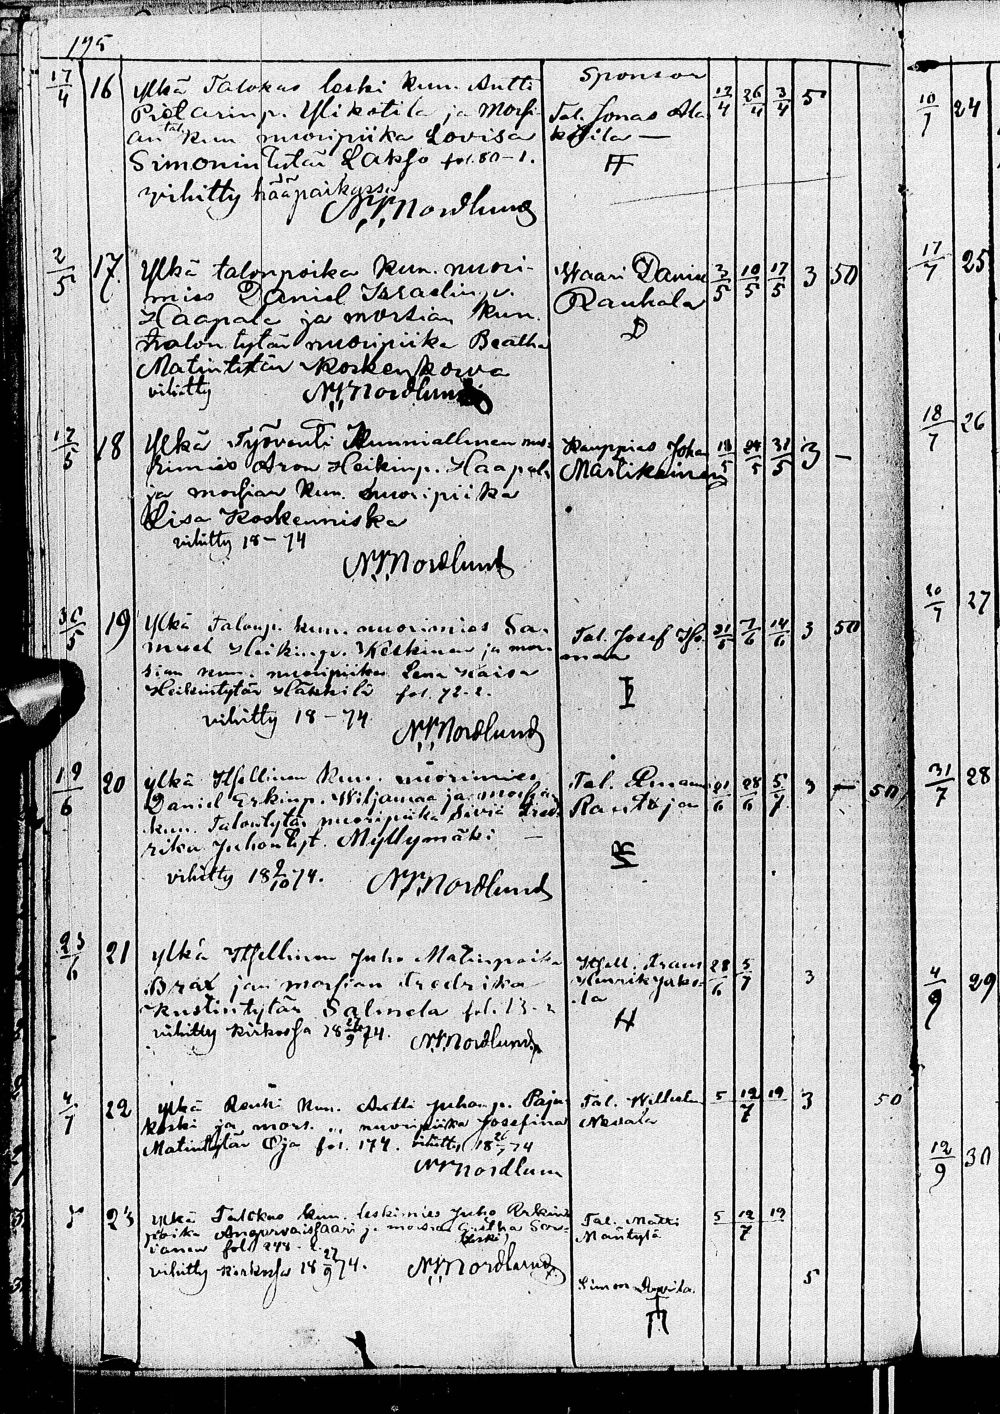 195
Sponsor
17/4 16 Ylkä Talokas leski kun. Antti
Pietarinp. Ylikotila ja Morsi-
an tal. kun. nuoripiika Lovisa
Simonintytär Lakso fol. 80-1.
vihitty hääpaikassa
N. I. Nordlund
Tal. Jonas Ala
kotila —
12/4 26/4 3/4 5
2/5 17. Ylkä talonpoika kun. nuori-
mies Daniel Israelinp.
Haapala ja morsian kun.
talon tytär nuoripiika Beatha
Matintytär Koskenkorva
vihitty N. I. Nordlund
Waari Daniel
Rauhala
D
3/5 10/5 17/5 3 50
17/5 18 Ylkä Työvouti Kunniallinen nuo-
rimies Aron Heikinp. Haapala
ja morsian kun. nuoripiika
Lisa Koskenniska
vihitty 18 — 74
N. I. Nordlund
Kauppias Joha
Martikainen
24/5 31/5 3 —
19 Ylkä Talonp. kun. nuorimies Sa-
muel Heikinp. Keskinen ja mor-
sian kun. nuoripiika Lena Kaisa
Heikintytär Häkkilä fol. 72-2.
vihitty 18 — 74
N. I. Nordlund
Tal. Josef
31/5 7/6 14/6 3 50
19/6 20 Ylkä Itsellinen kun. nuorimies
Daniel Erkinp. Wiljamaa ja morsian
kun. Talontytär nuoripiika Fred-
rika Juhontyt. Myllymäki —
vihitty 18 9/10 74. N. I. Nordlund
Tal.
Rantoja
21/6 28/6 5/7 3 — 50
23/6 21 Ylkä Itsellinen Juho Matinpoika
Brax ja morsian Fredrika
Kustintytär Salmela fol. 13-2
vihitty kirkossa 18 27/9 74. N. I. Nordlund
Itsell. Frans
Henrik
H
28/6 5/7 3
4/7 22 Ylkä Renki kun. Antti Juhanp. Paja-
koski ja mors. „ nuoripiika Josefina
Matintytär Oja fol. 174. vihitty 18 26/7 74
N. I. Nordlun
Tal. Wilhelm
5 12/7 19 3 50
23 Ylkä Talokas kun. leskimies Juho Erkin
poika ja morsian leski
fol. 248-2.
vihitty kirkossa 18 27/9 74. N. I. Nordlund
Tal. Matti
Mäntylä
5 12/7 19
Simon
5
10/7 24
17/7 25
18/7 26
20/7 27
31/7 28
4/9 29
12/9 30